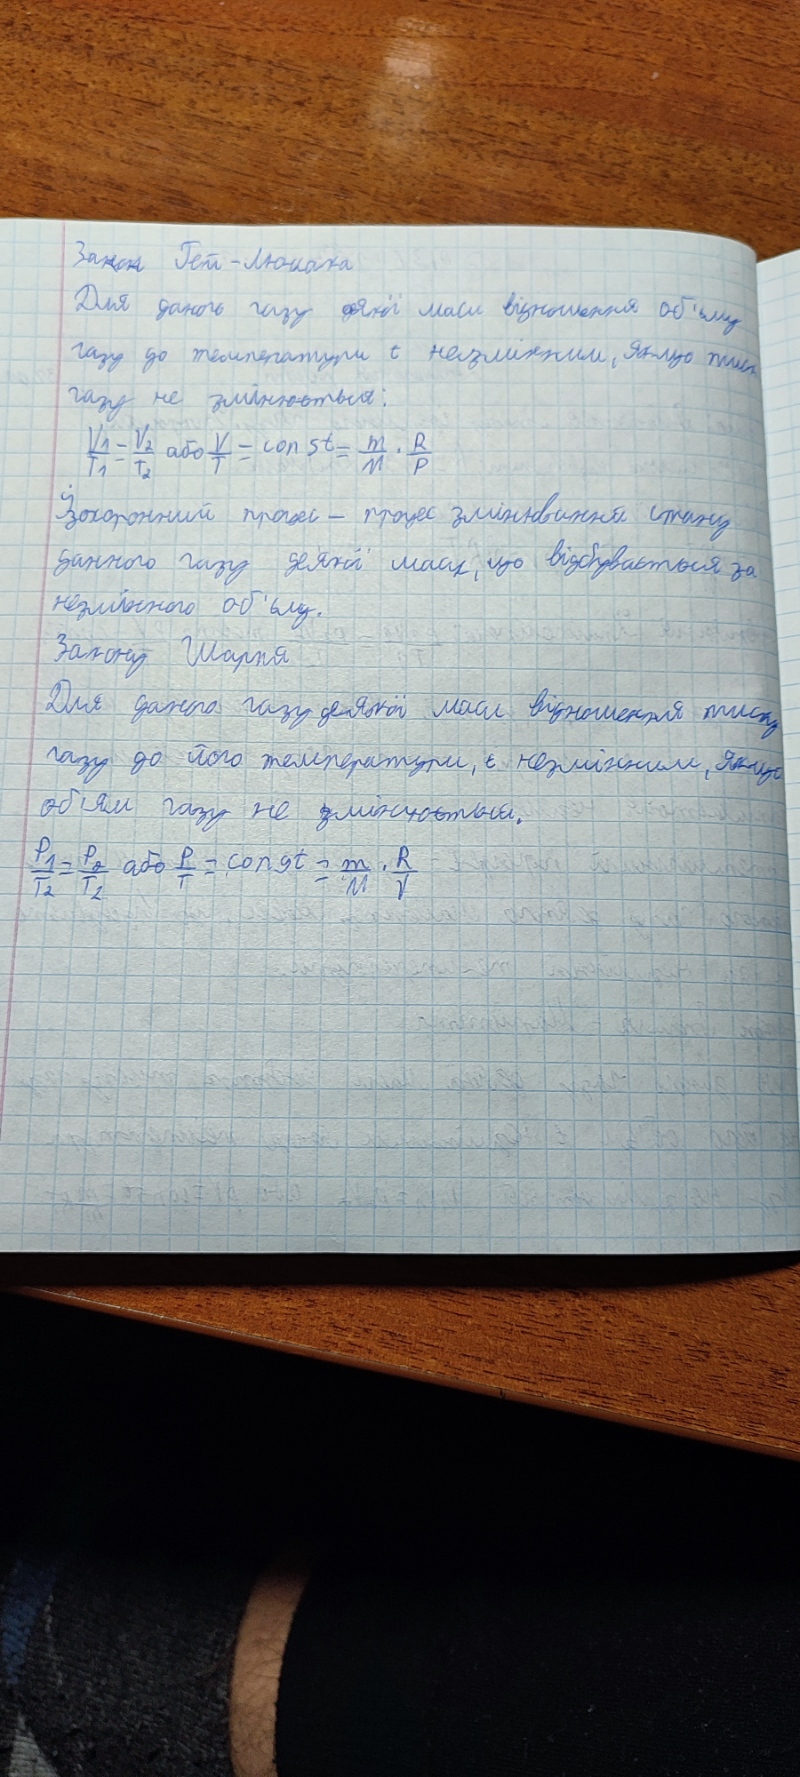 Закон Гей-Люссака
Для даного газу деякої маси відношення об'єму
газу до температури є незмінним, якщо тиск
газу не змінюється:
V1/T1 = V2/T2 або V/T = const = m/M · R/P
Ізохоронний процес – процес змінювання стану
данного газу деякої маси, що відбувається за
незмінного об'єму.
Закону Шарля
Для даного газу деякої маси відношення тиску
газу до його температури, є незмінним, якщо
об'єм газу не змінюється.
P1/T2 = P2/T2 або P/T = const = m/M · R/V